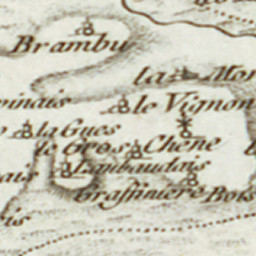 Brambu
la Mor
inais le Vignon
la Gues
le Gros Chêne
ais Lanbaudais
Graffiniere Bois
is